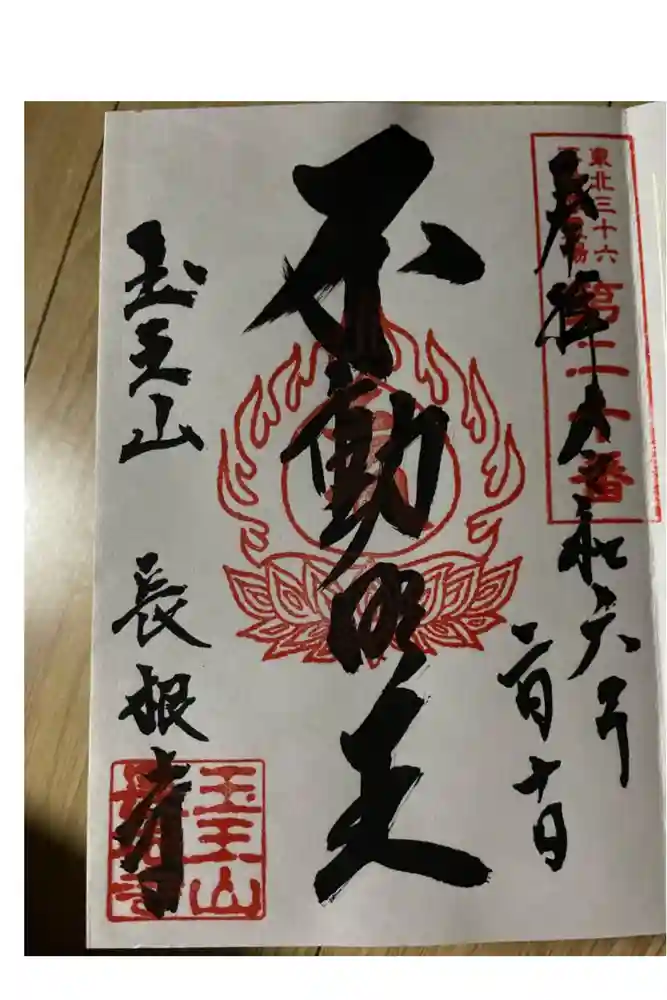 東北三十六
不動尊霊場
第二十番
奉拝 令和六年
二月十日
不動明王
玉王山
長根寺
玉王山
長根寺